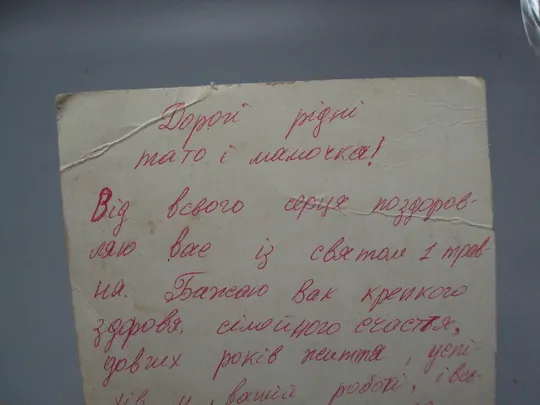 Дорогі рідні
тато і мамочка!
Від всього серця поздоров-
ляю вас із святом 1 трав-
ня. Бажаю Вам крепкого
здоровя, сімейного счастя,
довгих років життя, успі-
хів у вашій роботі, і всь-